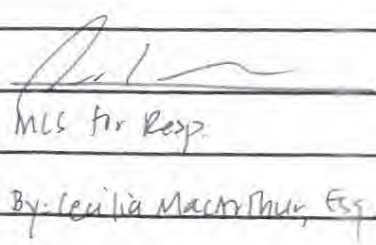 MLS for Resp.
By: Cecilia MacArthur, Esq